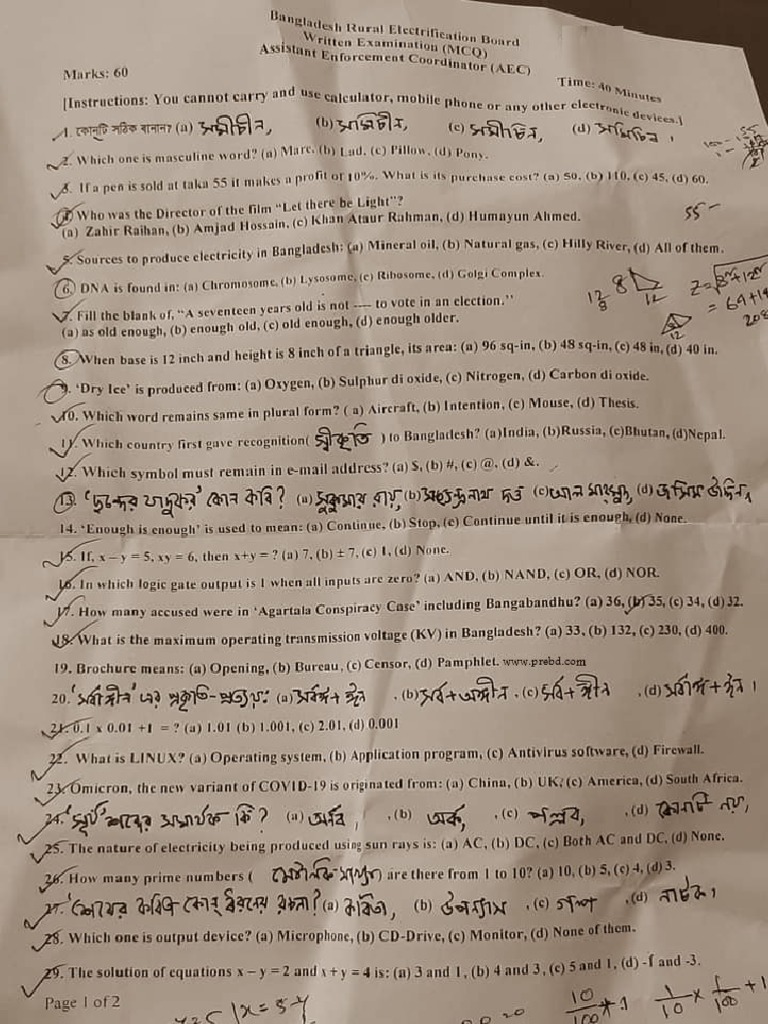 Bangladesh Rural Electrification Board
Written Examination (MCQ)
Assistant Enforcement Coordinator (AEC)
Marks: 60
Time: 40 Minutes
[Instructions: You cannot carry and use calculator, mobile phone or any other electronic devices.]
1. কোনটি সঠিক বানান? (a) সমীচীন, (b) সমিচীন, (c) সমীচিন, (d) সমিচিন।
2. Which one is masculine word? (a) Mare, (b) Lad, (c) Pillow, (d) Pony.
3. If a pen is sold at taka 55 it makes a profit of 10%. What is its purchase cost? (a) 50, (b) 110, (c) 45, (d) 60.
55 -
4. Who was the Director of the film "Let there be Light"?
(a) Zahir Raihan, (b) Amjad Hossain, (c) Khan Ataur Rahman, (d) Humayun Ahmed.
5. Sources to produce electricity in Bangladesh: (a) Mineral oil, (b) Natural gas, (c) Hilly River, (d) All of them.
6. DNA is found in: (a) Chromosome, (b) Lysosome, (c) Ribosome, (d) Golgi Complex.
7. Fill the blank of, "A seventeen years old is not ---- to vote in an election."
(a) as old enough, (b) enough old, (c) old enough, (d) enough older.
8. When base is 12 inch and height is 8 inch of a triangle, its area: (a) 96 sq-in, (b) 48 sq-in, (c) 48 in, (d) 40 in.
9. 'Dry Ice' is produced from: (a) Oxygen, (b) Sulphur di oxide, (c) Nitrogen, (d) Carbon di oxide.
10. Which word remains same in plural form? ( a) Aircraft, (b) Intention, (c) Mouse, (d) Thesis.
11. Which country first gave recognition( স্বীকৃতি ) to Bangladesh? (a)India, (b)Russia, (c)Bhutan, (d)Nepal.
12. Which symbol must remain in e-mail address? (a) $, (b) #, (c) @, (d) &.
13. 'ছন্দের যাদুকর' কোন কবি? (a) সুকুমার রায়, (b) সত্যেন্দ্রনাথ দত্ত (c) আল মাহমুদ, (d) জসিম উদ্দিন,
14. 'Enough is enough' is used to mean: (a) Continue, (b) Stop, (c) Continue until it is enough, (d) None.
15. If, x – y = 5, xy = 6, then x+y = ? (a) 7, (b) ± 7, (c) 1, (d) None.
16. In which logic gate output is 1 when all inputs are zero? (a) AND, (b) NAND, (c) OR, (d) NOR.
17. How many accused were in 'Agartala Conspiracy Case' including Bangabandhu? (a) 36, (b) 35, (c) 34, (d) 32.
18. What is the maximum operating transmission voltage (KV) in Bangladesh? (a) 33, (b) 132, (c) 230, (d) 400.
19. Brochure means: (a) Opening, (b) Bureau, (c) Censor, (d) Pamphlet. www.prebd.com
20. 'সর্বাঙ্গীন' এর প্রকৃতি-প্রত্যয়: (a) সর্বঙ্গ + ঈন .(b) সর্ব + অঙ্গীন .(c) সর্ব + ঙ্গীন .(d) সর্বাঙ্গ + ঈন।
21. 0.1 x 0.01 +1 = ? (a) 1.01 (b) 1.001, (c) 2.01, (d) 0.001
22. What is LINUX? (a) Operating system, (b) Application program, (c) Antivirus software, (d) Firewall.
23. Omicron, the new variant of COVID-19 is originated from: (a) China, (b) UK, (c) America, (d) South Africa.
24. 'সূর্য' শব্দের সমার্থক কি? (a) অরি, .(b) অর্ক, .(c) পল্লব, .(d) কোনটি নয়,
25. The nature of electricity being produced using sun rays is: (a) AC, (b) DC, (c) Both AC and DC, (d) None.
26. How many prime numbers ( মৌলিক সংখ্যা) are there from 1 to 10? (a) 10, (b) 5, (c) 4, (d) 3.
27. 'শেষের কবিতা' কোন্ ধরনের রচনা? (a) কবিতা, (b) উপন্যাস .(c) গল্প .(d) নাটক।
28. Which one is output device? (a) Microphone, (b) CD-Drive, (c) Monitor, (d) None of them.
29. The solution of equations x – y = 2 and x + y = 4 is: (a) 3 and 1, (b) 4 and 3, (c) 5 and 1, (d) -1 and -3.
Page 1 of 2